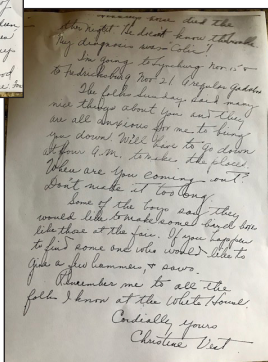 ever did the
other night. He didn't know the
My diagnosis was Colic!
I'm going to Lynchburg Nov. 15 &
to Fredericksburg Nov 21. A regular
The folks Sunday said many
nice things about you and they
are all anxious for me to bring
you down. Will have to go down
at four A.M. to make the place.
When are you coming out?
Don't make it too long
Some of the boys say they
would like to make some bird boxes
like those at the fair. If you happen
to find some one who would like to
give a few hammers & saws.
Remember me to all the
folks I know at the White House.
Cordially yours
Christine Vest